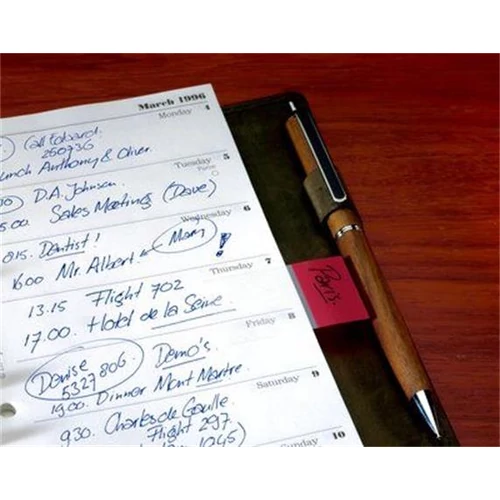 March 1996
Monday 4
Call Edward.
250736
Lunch Anthony & Oliver.
Tuesday 5
D.A. Johnson
Sales Meeting (Dave)
Wednesday 6
815. Dentist!
1600 Mr. Albert Mary !
Thursday 7
13.15 Flight 702
Paris.
17.00. Hotel de la Seine
Friday 8
Denise Demo's.
5327806.
19.00. Dinner Mont Martre.
Saturday 9
930. Charles de Gaulle.
Flight 297.
1045)
Sunday 10